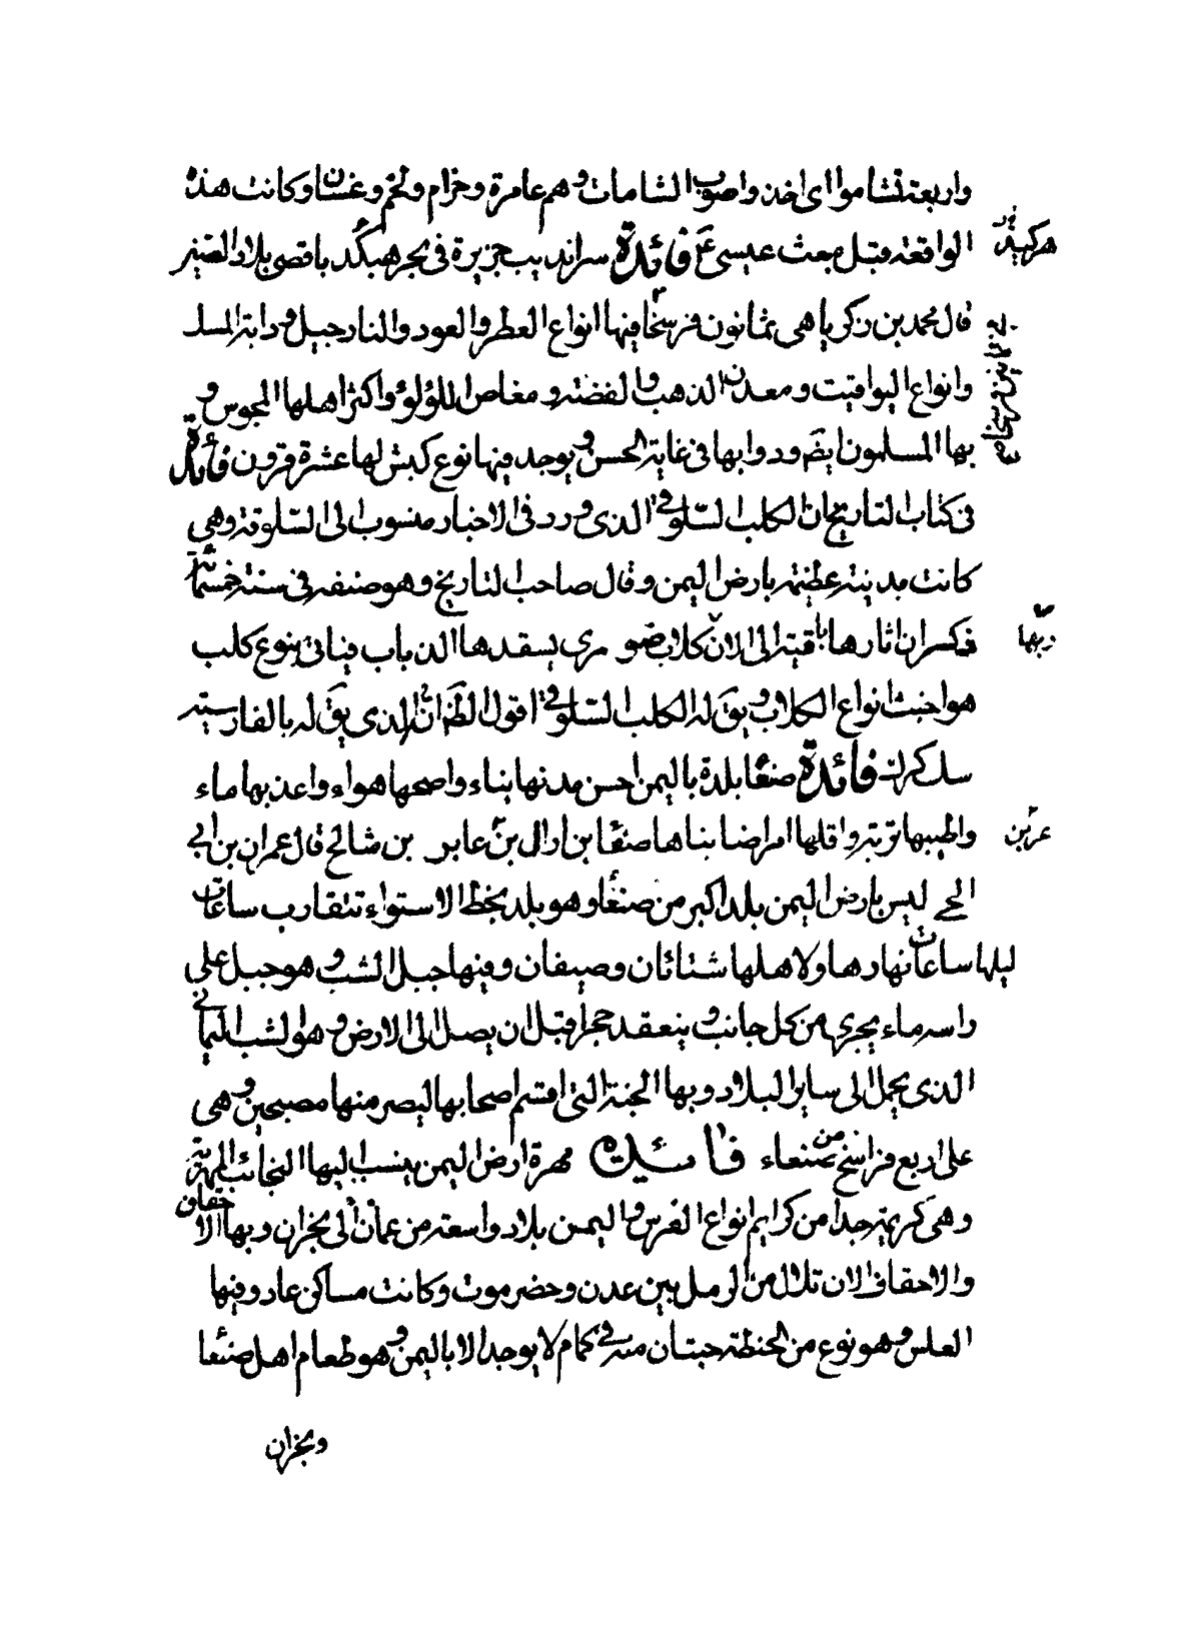 واربعة تشاموا اى اخذوا صوب الشامات وهم عامرة وخزام ولخم وغسان وكانت هذه
الواقعة قبل مبعث عيسى ع فائدة سرانديب جزيرة فى بحر هبكند باقصى بلاد الصين
قال محمد بن زكريا هى ثمانون فرسخا فيها انواع العطر والعود والنارجيل ودابة المسك
وانواع اليواقيت ومعدن الذهب والفضة ومغاص اللؤلؤ واكثر اهلها المجوس و
بها المسلمون ايضَ ودوابها فى غاية الحسن ويوجد فيها نوع كبش لها عشرة قرون فائدة
فى كتاب التاريخ ان الكلب السلوقى الذى ورد فى الاخبار منسوب الى السلوقة وهى
كانت مدينة عظيمة بارض اليمن وقال صاحب التاريخ وهو صنفه فى سنة خمسمائة
فكسران اثارها باقية الى الان كلاب ضو مرى يسفدها الذباب فياتى بنوع كلب
هو اخبث انواع الكلاب ويقَ له الكلب السلوقى اقول الظَ ان الذى يقَ له بالفارسية
سك كرك فائدة صنعا بلدة باليمن احسن مدنها بناء واصحها هواء واعذبها ماء
واطيبها تربة واقلها امراضا بناها صنعا بن ازال بن عابر بن شالخ قال عمران بن ابى
الحى ليس بارض اليمن بلد اكبر من صنعا وهو بلد بخط الاستواء تتقارب ساعات
ليلها ساعات نهارها ولاهلها شتائان وصيفان وفيها جبل الشب وهو جبل على
راسه ماء يجرى من كل جانب وينعقد حجرا قبل ان يصل الى الارض وهو الشب اليمانى
الذى يحمل الى ساير البلاد وبها الجنة التى اقسم اصحابها ليصرمنها مصبحين وهى
على اربع فراسخ من صنعاء فائدة مهرة ارض اليمن ينسب اليها النجائب المهرية
وهى كريمة جدا من كرايم انواع الفرس واليمن بلاد واسعة من عمان الى نجران وبها الاحقاف
والاحقاف الان تلال من الرمل بين عدن وحضرموت وكانت مساكن عاد وفيها
العلس وهو نوع من الحنطة حبتان منه فى كمام لا يوجد الا باليمن وهو طعام اهل صنعا
ونجران
هركند
عربن